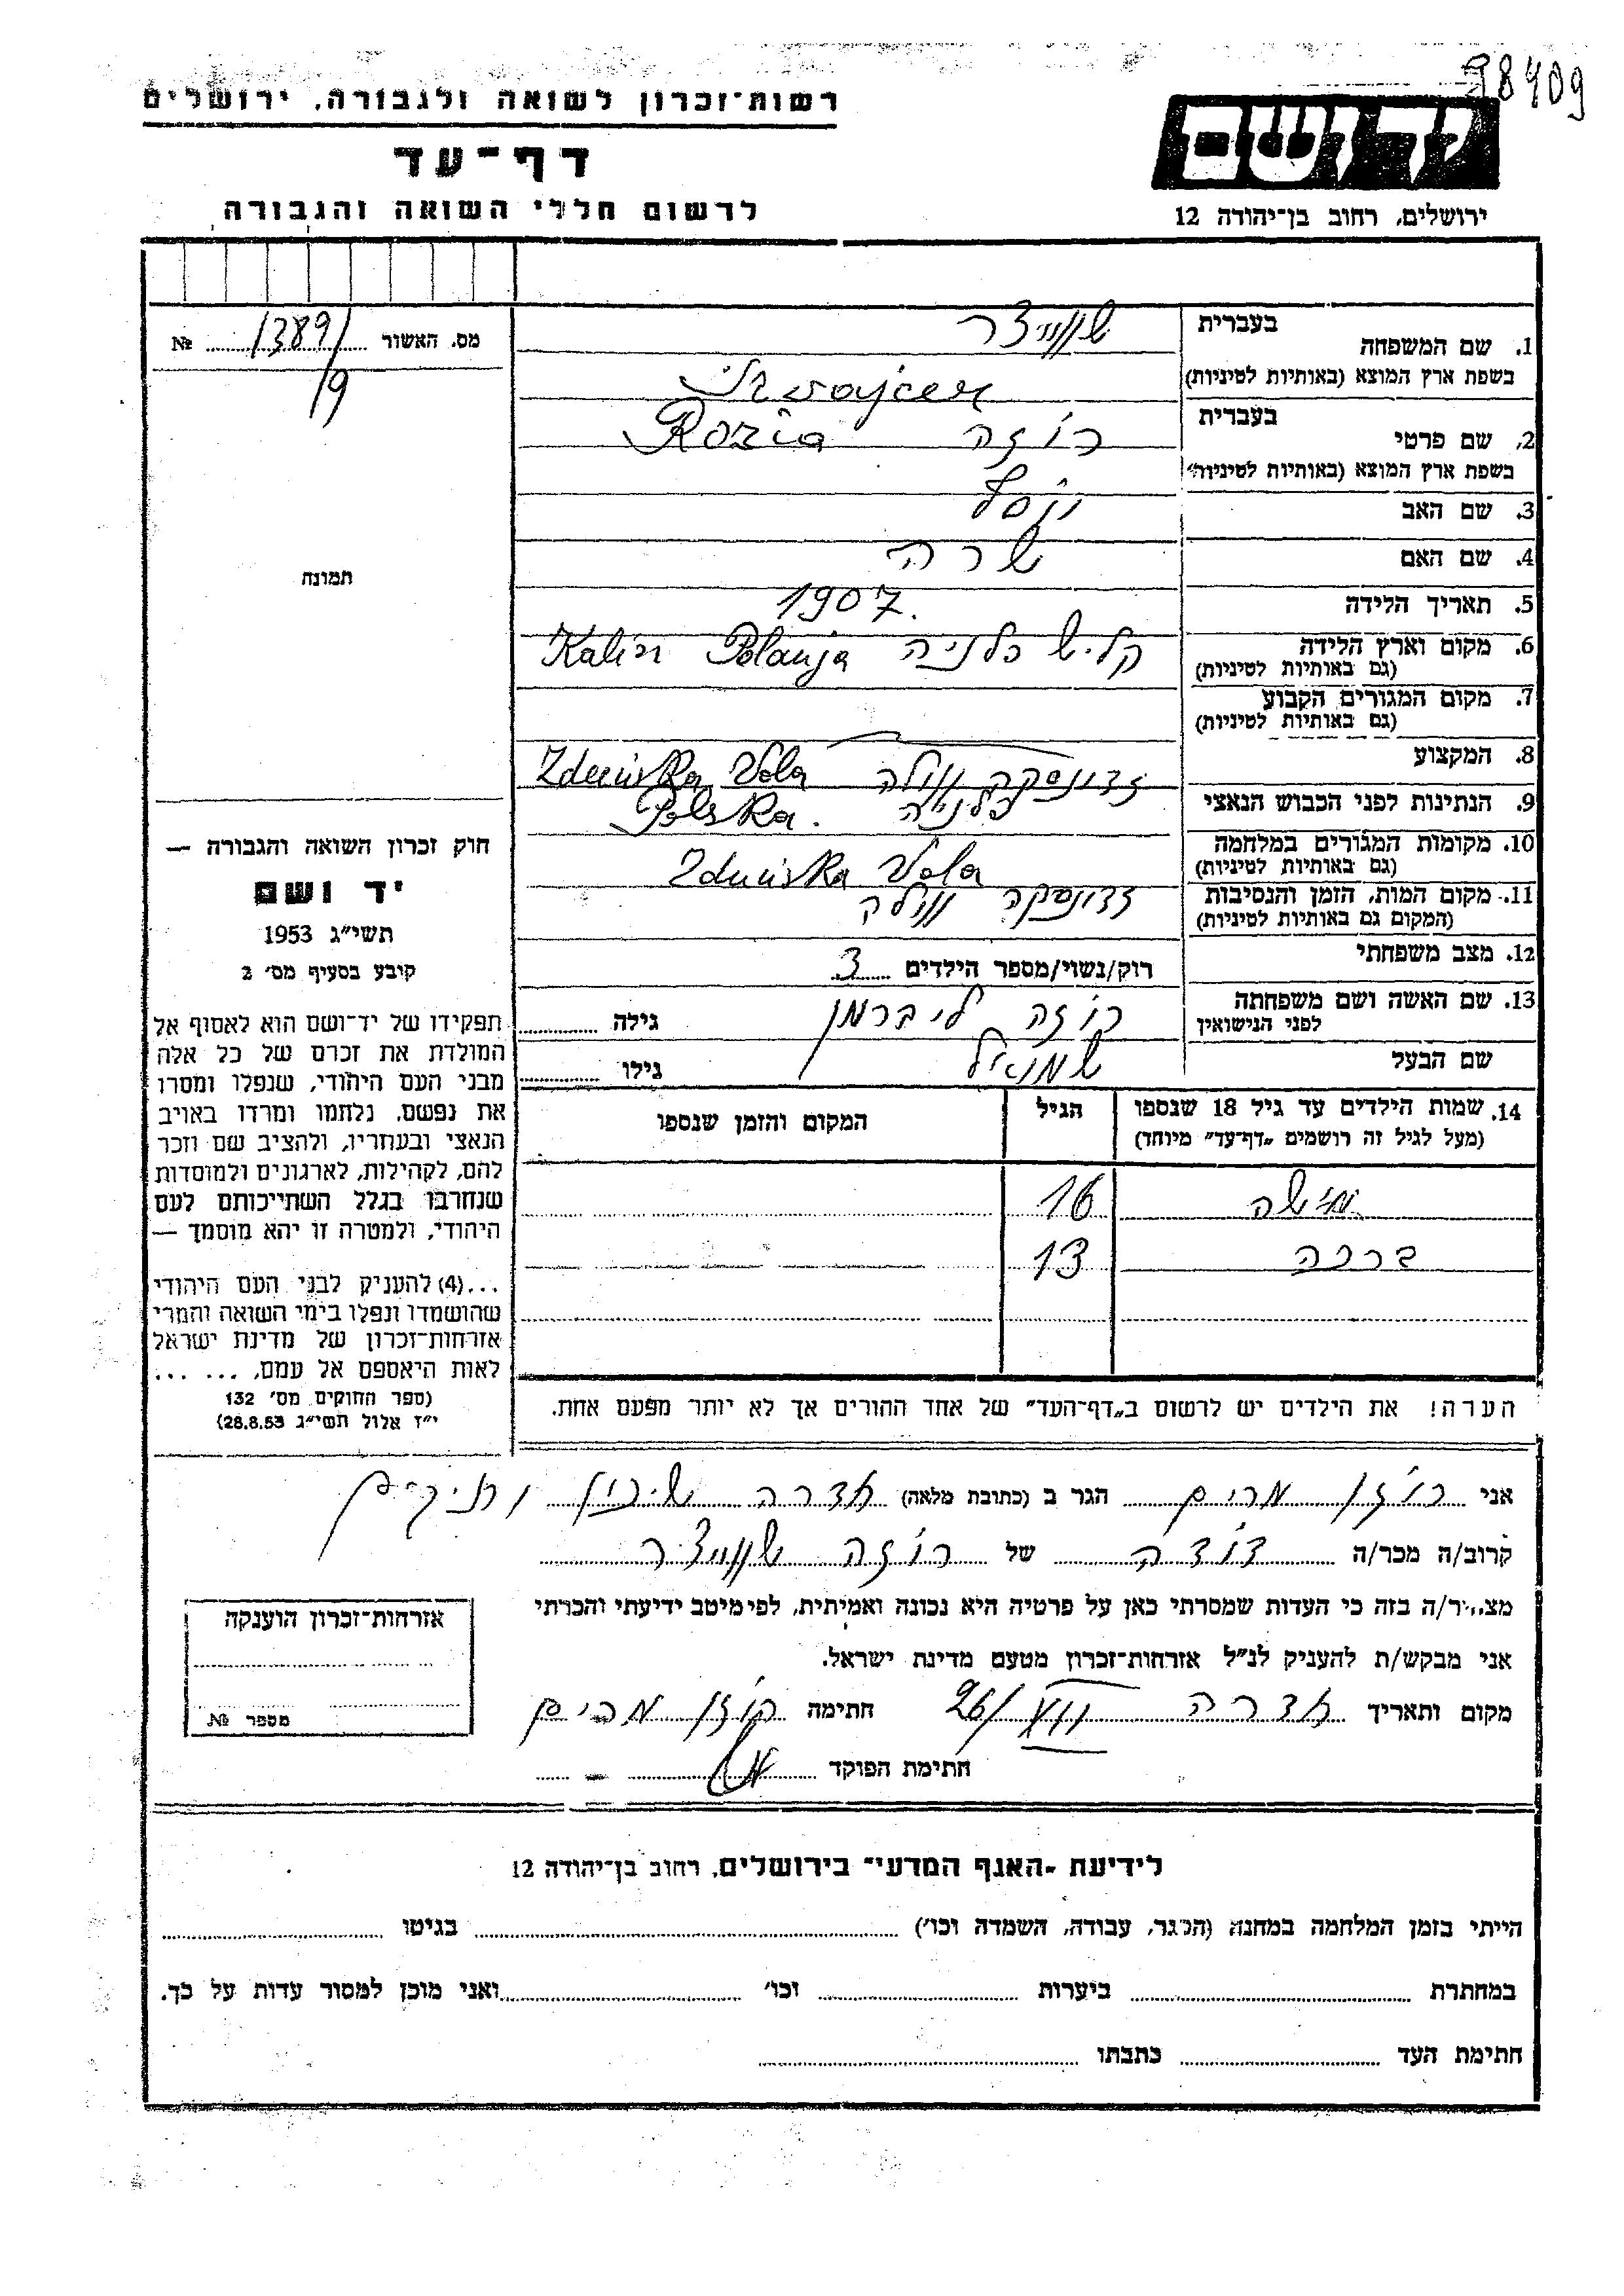 98409
רשות־זכרון לשואה ולגבורה, ירושלים
דף־עד
לרשום חללי השואה והגבורה
יד ושם
ירושלים, רחוב בן־יהודה 12
מס. האשור 1389/ №
19
תמונה
חוק זכרון השואה והגבורה —
יד ושם
תשי״ג 1953
קובע בסעיף מס׳ 2
תפקידו של יד־ושם הוא לאסוף אל
המולדת את זכרם של כל אלה
מבני העם היהודי, שנפלו ומסרו
את נפשם, נלחמו ומרדו באויב
הנאצי ובעוזריו, ולהציב שם וזכר
להם, לקהילות, לארגונים ולמוסדות
שנחרבו בגלל השתייכותם לעם
היהודי, ולמטרה זו יהא מוסמך —
...(4) להעניק לבני העם היהודי
שהושמדו ונפלו בימי השואה והמרי
אזרחות־זכרון של מדינת ישראל
לאות היאספם אל עמם, ... ...
(ספר החוקים מס׳ 132
י״ז אלול תשי״ג 28.8.53)
1. שם המשפחה בעברית שווייצר
בשפת ארץ המוצא (באותיות לטיניות) Szwajcer
2. שם פרטי בעברית רוזה Rozia
בשפת ארץ המוצא (באותיות לטיניות)
3. שם האב יוסף
4. שם האם שרה
5. תאריך הלידה 1907.
6. מקום וארץ הלידה קליש פלניה Polanja
(גם באותיות לטיניות)
7. מקום המגורים הקבוע
(גם באותיות לטיניות)
8. המקצוע זדונסקה וולה Zduńska Vola
9. הנתינות לפני הכבוש הנאצי פלניה Polska.
10. מקומות המגורים במלחמה Zduńska Vola
(גם באותיות לטיניות)
11. מקום המות, הזמן והנסיבות זדונסקה וולה
(המקום גם באותיות לטיניות)
12. מצב משפחתי רוק/נשוי/מספר הילדים 3
13. שם האשה ושם משפחתה רוזה ליברמן גילה
לפני הנישואין
שם הבעל שמואל גילו
14. שמות הילדים עד גיל 18 שנספו הגיל המקום והזמן שנספו
(מעל לגיל זה רושמים „דף־עד״ מיוחד)
16
ברכה 13
הערה! את הילדים יש לרשום ב„דף־העד״ של אחד ההורים אך לא יותר מפעם אחת.
אני רוזן מרים הגר ב (כתובת מלאה) אדרה שיכון ותיקים
קרוב/ה מכר/ה דודה של רוזה שווייצר
מצהיר/ה בזה כי העדות שמסרתי כאן על פרטיה היא נכונה ואמיתית, לפי מיטב ידיעתי והכרתי
אני מבקש/ת להעניק לנ״ל אזרחות־זכרון מטעם מדינת ישראל.
מקום ותאריך אדרה 26/ חתימה רוזן מרים
חתימת הפוקד
אזרחות־זכרון הוענקה
מספר №
לידיעת „האגף המדעי״ בירושלים, רחוב בן־יהודה 12
הייתי בזמן המלחמה במחנה (הסגר, עבודה, השמדה וכו׳) בגיטו
במחתרת ביערות וכו׳ ואני מוכן למסור עדות על כך.
חתימת העד כתבתו